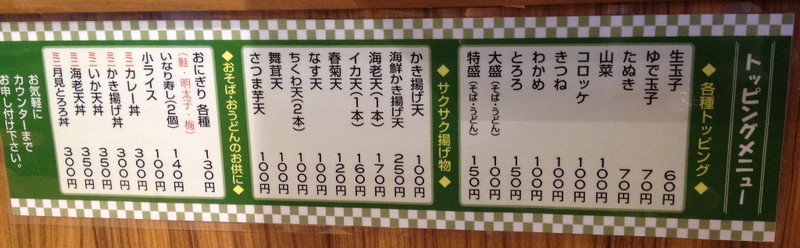 トッピングメニュー
◆各種トッピング◆
生玉子 60円
ゆで玉子 70円
たぬき 70円
山菜 100円
コロッケ 100円
きつね 100円
わかめ 100円
とろろ 150円
大盛(そば・うどん) 100円
特盛(そば・うどん) 150円
◆サクサク揚げ物◆
かき揚げ天 100円
海鮮かき揚げ天 250円
海老天(1本) 170円
イカ天(1本) 160円
春菊天 120円
なす天 100円
ちくわ天(2本) 100円
舞茸天 100円
さつま芋天 100円
◆おそば・おうどんのお供に◆
おにぎり 各種 130円
(鮭・明太子・梅)
いなり寿し(2個) 140円
小ライス 100円
ミニカレー丼 300円
ミニかき揚げ丼 300円
ミニいか天丼 350円
ミニ海老天丼 350円
ミニ月見とろろ丼 300円
お気軽に
カウンターまで
お申し付け下さい。